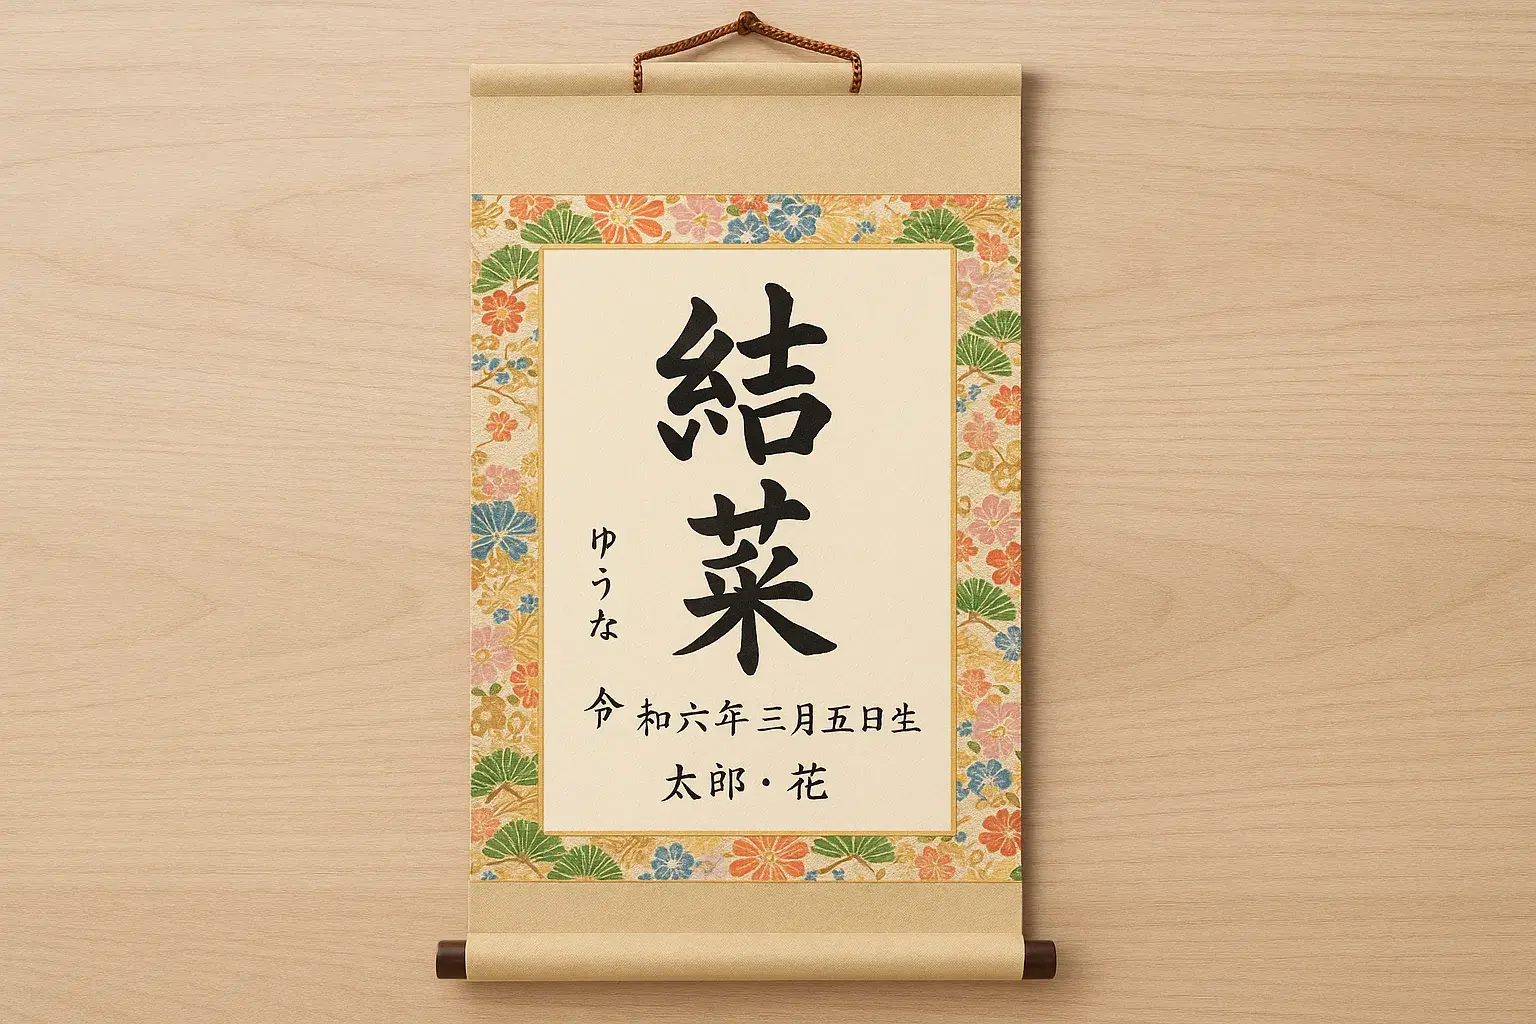 結菜
ゆうな
令和六年三月五日生
太郎・花